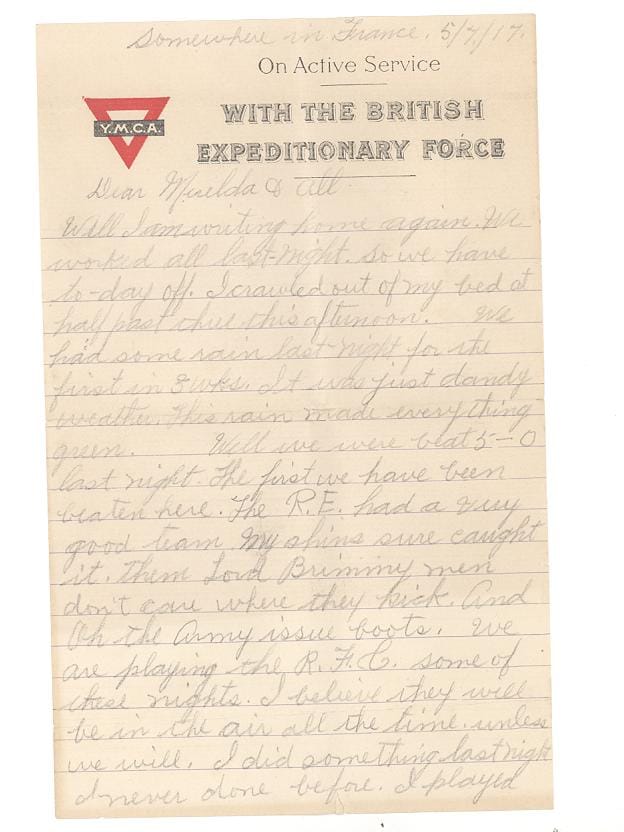 Somewhere in France. 5/7/17.
On Active Service
WITH THE BRITISH
EXPEDITIONARY FORCE
Y.M.C.A.
Dear & All
Well I am writing home again. We
worked all last night. so we have
to-day off. I crawled out of my bed at
half past three this afternoon. We
had some rain last night for the
first in 3 wks. It was just dandy
weather. This rain made everything
green. Well we were beat 5-0
last night. The first we have been
beaten here. The R.E. had a very
good team. My shins sure caught
it. Them Lord men
don't care where they kick. And
Oh the Army issue boots. We
are playing the R.F.C. some of
these nights. I believe they will
be in the air all the time. unless
we will. I did something last night
I never done before. I played